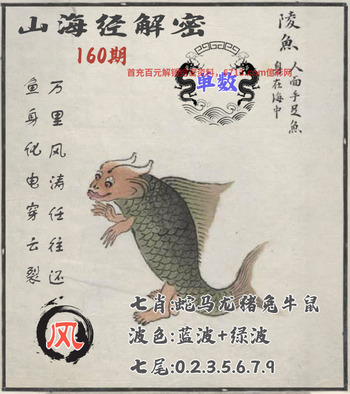 山海经解密
160期
陵魚
人面手足魚
身在海中
单数
万里风涛任往还
鱼身化电穿云裂
风
七肖:蛇马龙猪兔牛鼠
波色:蓝波+绿波
七尾:0.2.3.5.6.7.9